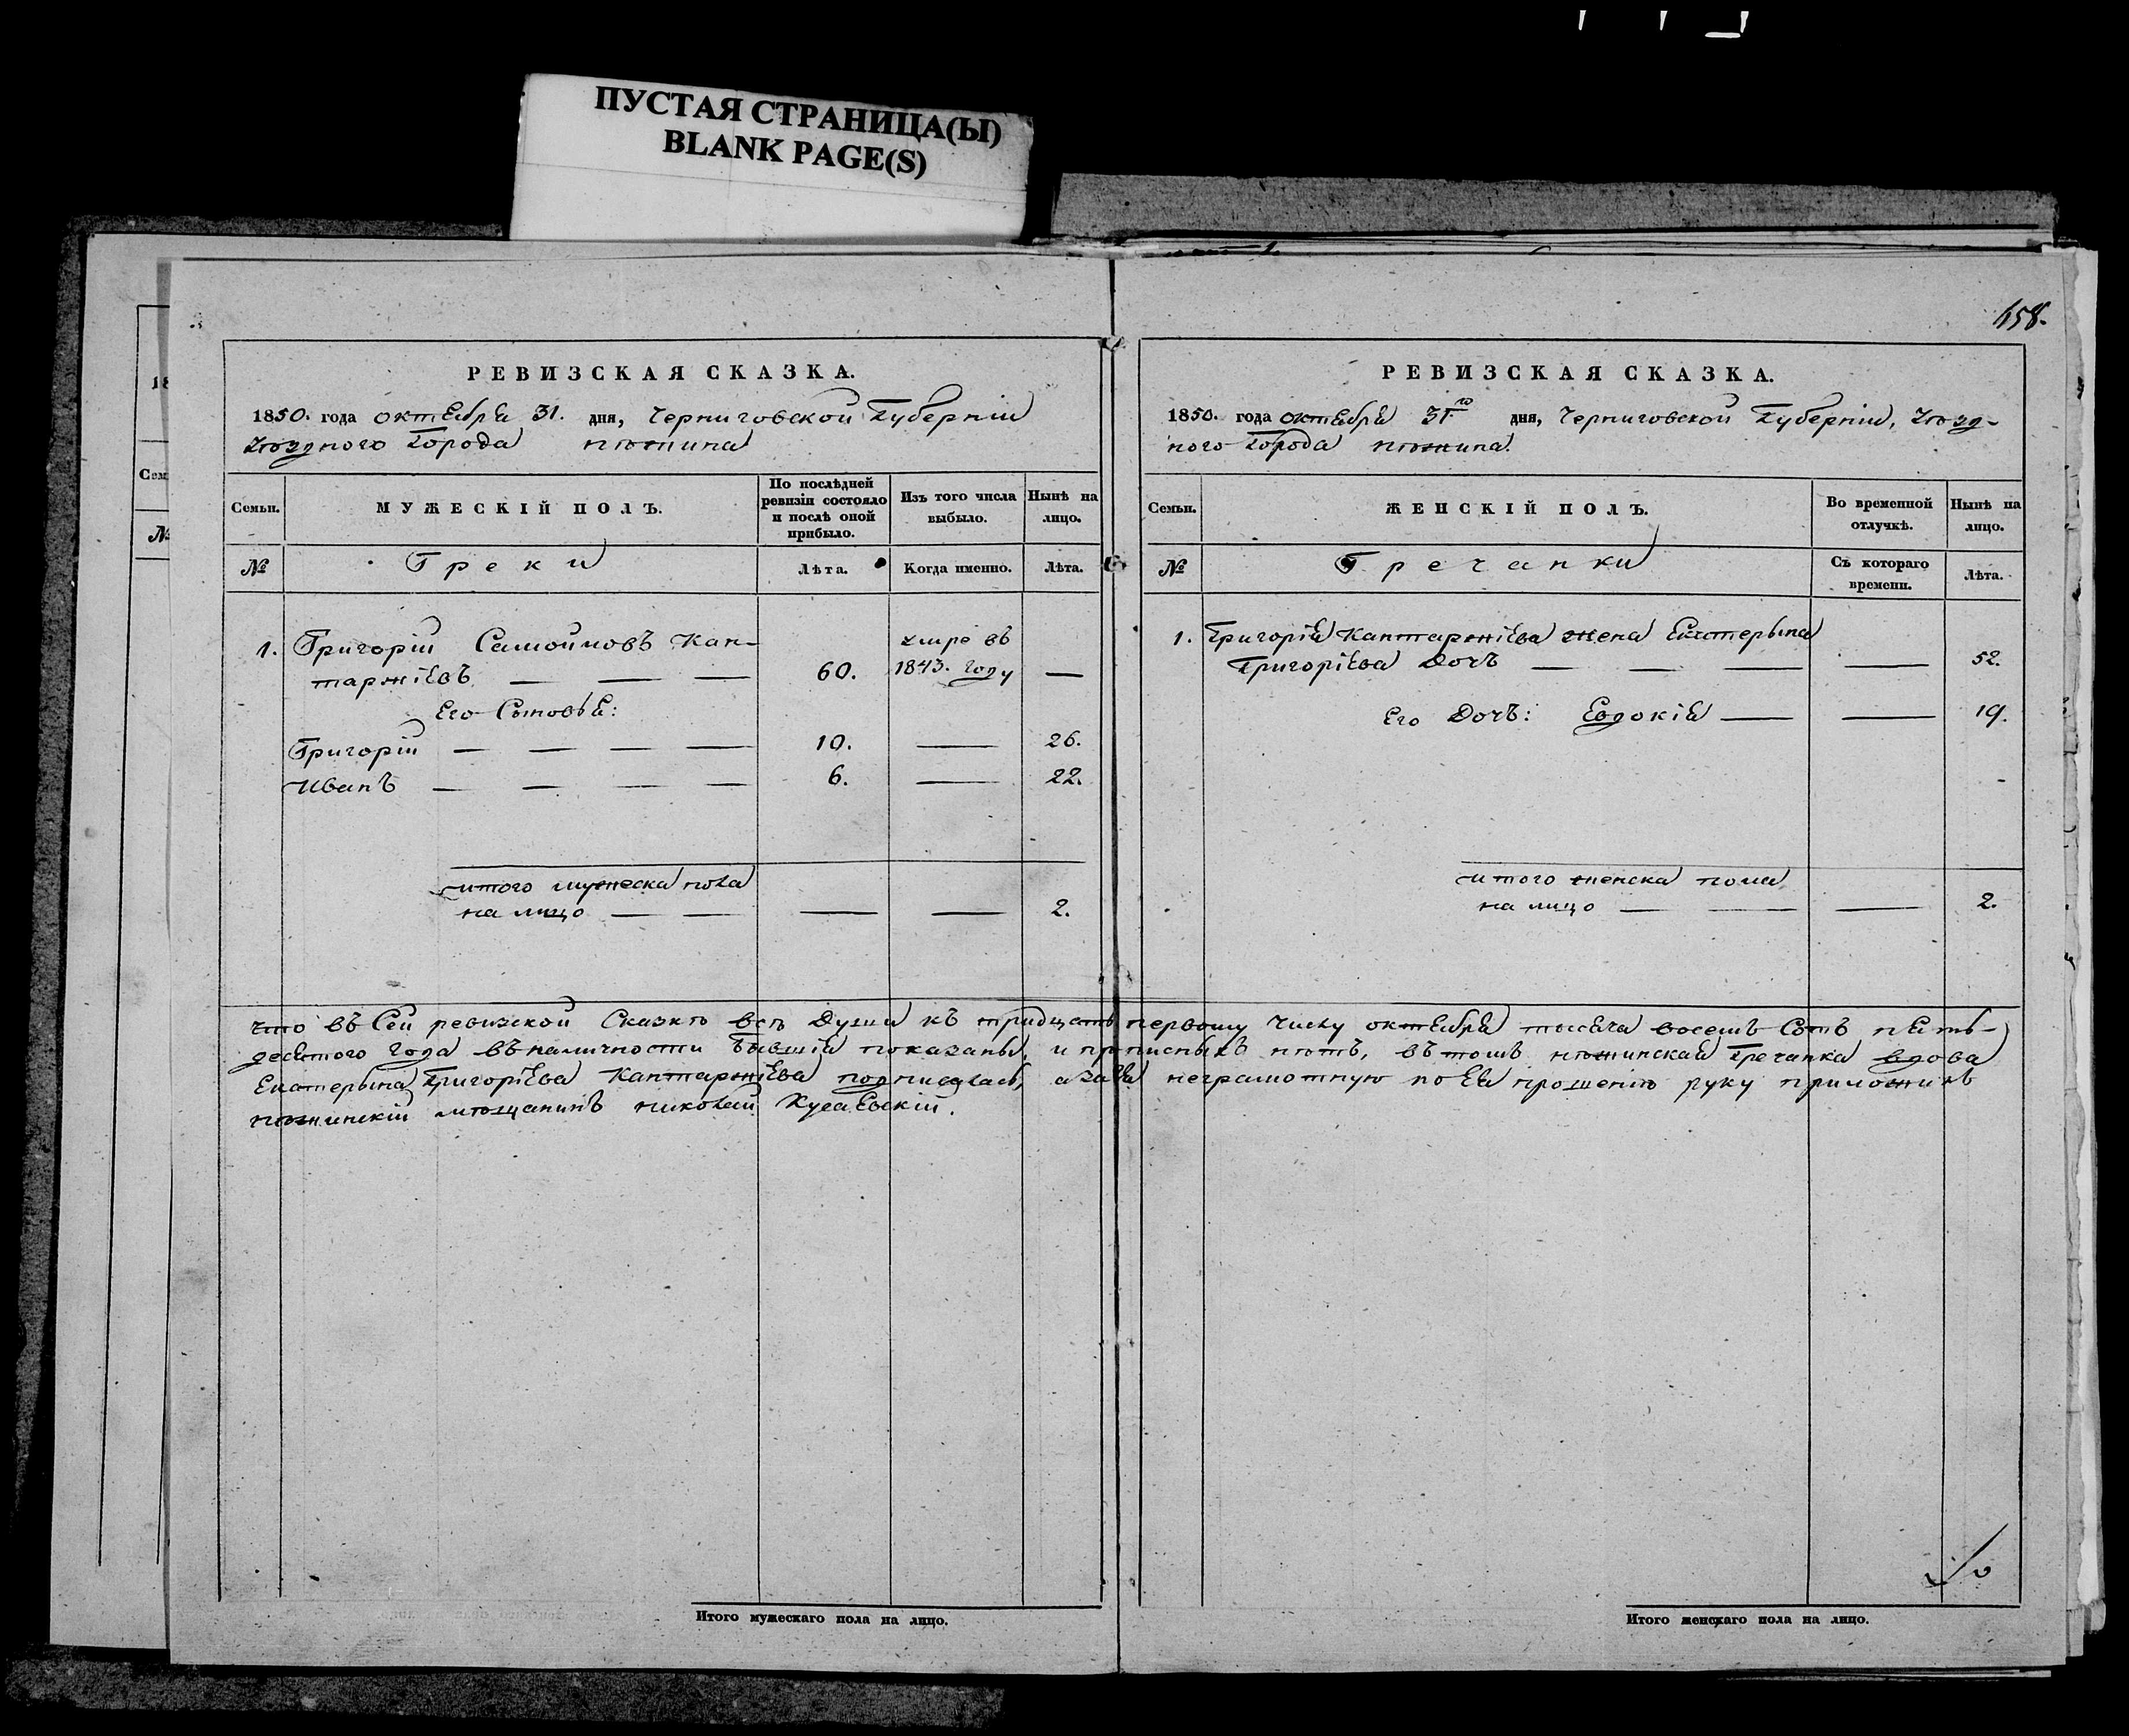 ПУСТАЯ СТРАНИЦА(Ы)
BLANK PAGE(S)
158.
РЕВИЗСКАЯ СКАЗКА.
1850. года октября 31. дня, Черниговской Губерніи
уѣзднаго Города Нѣжина
Семьи.
МУЖЕСКІЙ ПОЛЪ.
По послѣдней ревизіи состояло и послѣ оной прибыло.
Изъ того числа выбыло.
Нынѣ на лицо.
№
Греки
Лѣта.
Когда именно.
Лѣта.
1. Григорій Самойловъ Кан- умре въ
таржіевъ — — — 60. 1843. году —
Его Сыновья:
Григорій — — — — 10. — 26.
Иванъ — — — — 6. — 22.
итого мужеска пола
на лицо — — — — 2.
РЕВИЗСКАЯ СКАЗКА.
1850. года октября 31.го дня, Черниговской Губерніи, уѣзд-
ного Города Нѣжина.
Семьи.
ЖЕНСКІЙ ПОЛЪ.
Во временной отлучкѣ.
Нынѣ на лицо.
№
Гречанки
Съ котораго времени.
Лѣта.
1. Григорія Кантаржіева жена Екатерына
Григоріева Дочь — — — — 52.
Его Дочь: Евдокія — — 19.
итого женска пола
на лицо — — — 2.
что въ Сей ревизской Сказкѣ всѣ Души къ тридцать первому числу октября тысяча восемъ Сотъ пять-
десятого года въ наличности бывшія показаны, и прописныхъ нѣтъ, въ томъ нѣжинская Гречанка вдова
Екатерына Григоріева Кантаржіева подписалась, а за нея неграмотную по Ея прошенію руку приложилъ
нѣжинскій мѣщанинъ николай
Итого мужескаго пола на лицо.
Итого женскаго пола на лицо.